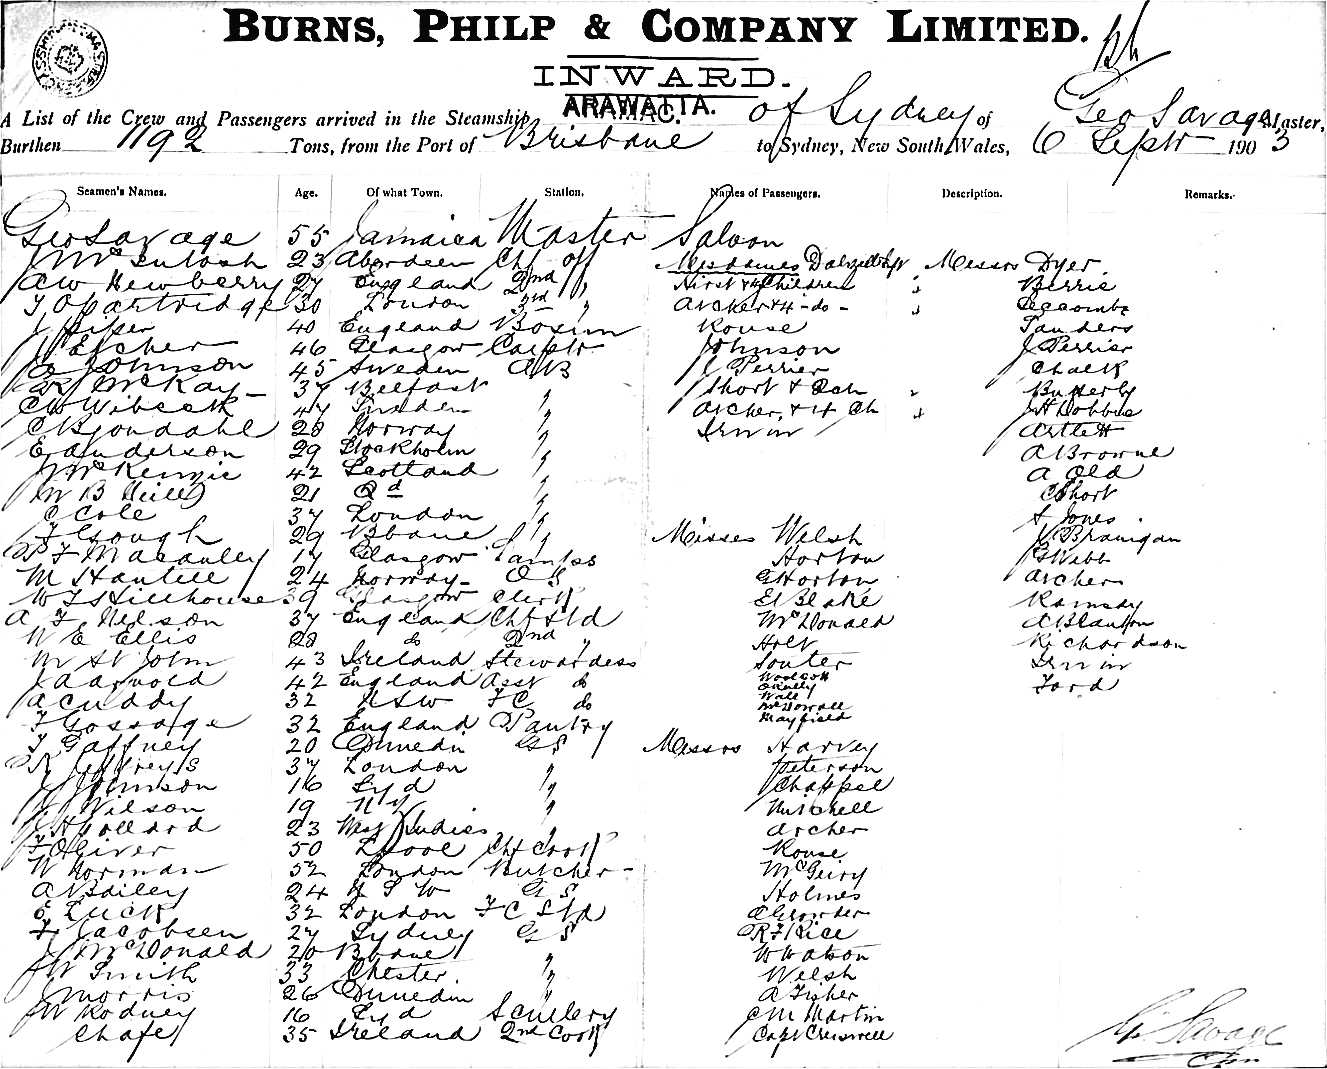 BURNS, PHILP & COMPANY LIMITED.
INWARD.
ARAWATTA.
A List of the Crew and Passengers arrived in the Steamship of Sydney of Geo Savage Master,
Burthen 1192 Tons, from the Port of Brisbane to Sydney, New South Wales, 6 Septr 1903
Seamen's Names. Age. Of what Town. Station. Names of Passengers. Description. Remarks.
Geo Savage 55 Jamaica Master Saloon
J McIntosh 23 Aberdeen Chf off Mesdames Messrs Dyer
AW Newberry 27 England 2nd " Hirst & 4 Children " Berrie
T O Partridge 30 London 3rd " Archer & 4 - do - " Seccombe
J Piper 40 England Bosun Rouse Sanders
46 Glasgow Carptr Johnson J Perrier
Johnson 45 Sweden AB J Perrier Chalk
McKay 37 Belfast " Short & Ch " Butterly
CW Wibeck 47 Sweden " Archer & 4 Ch " JH Dobbie
C Bjondahl 28 Norway " Irwin Artlett
E Anderson 29 Stockholm " A Browne
McKenzie 42 Scotland " A Old
W B Neill 21 Qd " C Short
C Cole 37 London " Jones
F Gough 29 Bbane " Misses Welsh J Branigan
F Macauley 17 Glasgow Lamps Horton G Webb
M Hantell 24 Norway OS G Horton Archer
W T S Hillhouse 39 Glasgow Clerk E Blake Ramsay
A F Nelson 37 England Chf Std McDonald A Blanton
W E Ellis 28 do 2nd " Holt Richardson
M St John 43 Ireland Stewardess Souter Irwin
J Arnold 42 England Asst do Woolcott Ford
A Cuddy 32 NSW FC do Wall
McDowall
F Gossage 32 England Pantry Mayfield
T Gaffney 20 Dunedin GS Messrs Harvey
R Jeffreys 37 London " Peterson
J Johnson 16 Syd " Chappel
J Wilson 19 N Z " Mitchell
J H Pollard 23 West Indies " Archer
F Oliver 50 Lpool Chf Cook Rouse
W Norman 52 London Butcher - McGeiry
A Bailey 24 N S W GS Holmes
E Luck 32 London FC Std C Growder
F Jacobsen 27 Sydney GS R F Rice
J McDonald 20 Bbane " W Watson
J W Smith 33 Chester " Welsh
J Morris 26 Dunedin " A Fisher
J W Rodney 16 Syd Scullery C M Martin
Chafe 35 Ireland 2nd Cook Capt Creswell
G. Savage